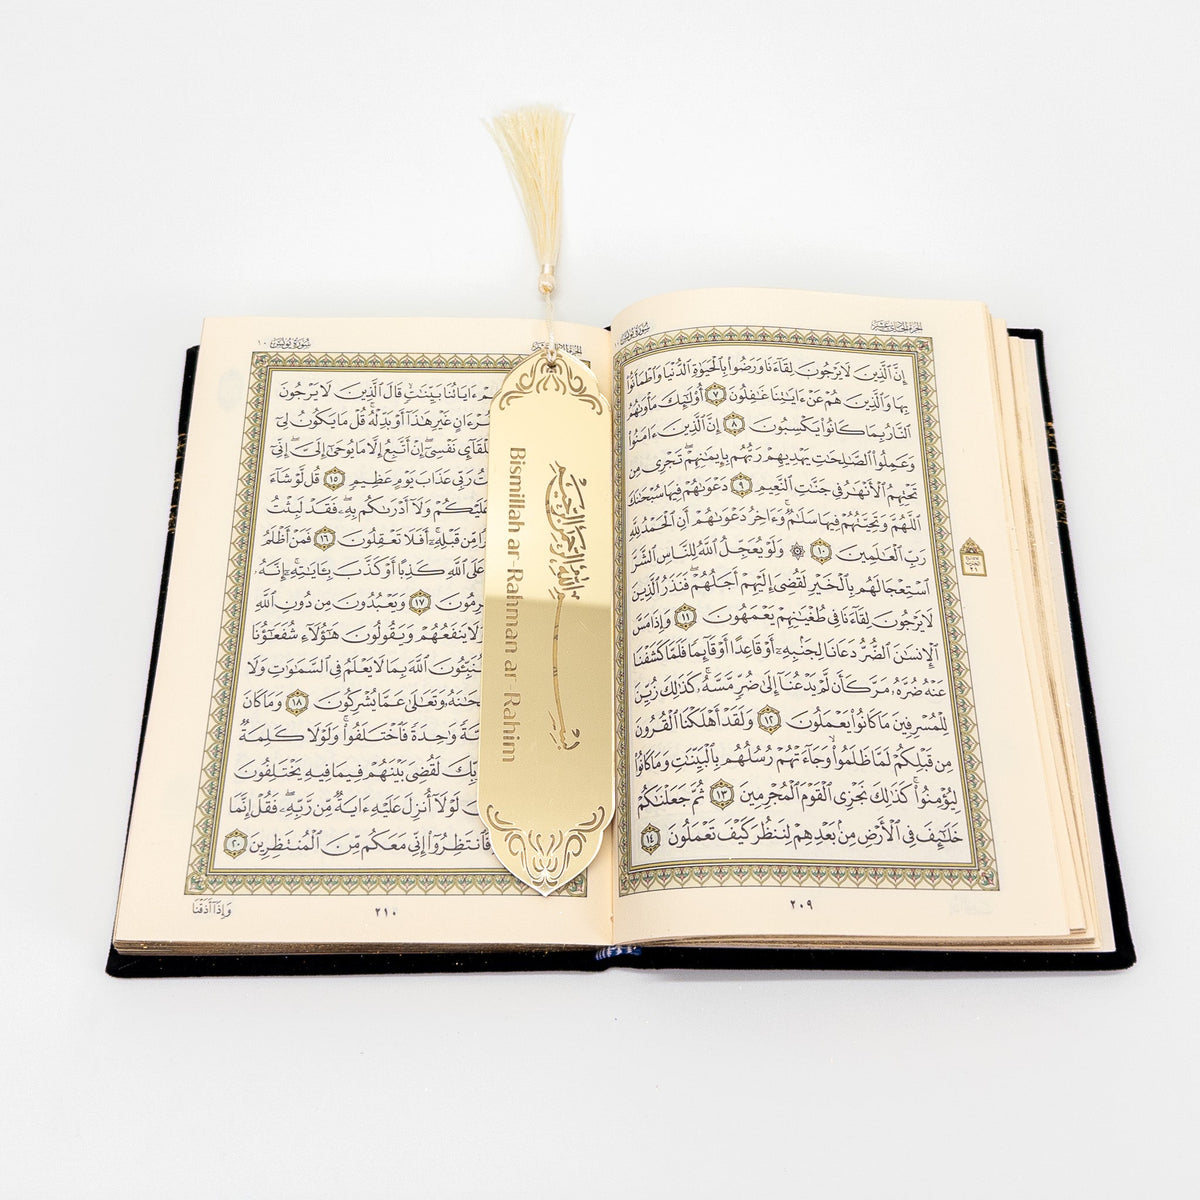 الجزء الحادي عشر
سورة يونس
إِنَّ ٱلَّذِينَ لَا يَرْجُونَ لِقَآءَنَا وَرَضُوا۟ بِٱلْحَيَوٰةِ ٱلدُّنْيَا وَٱطْمَأَنُّوا۟
بِهَا وَٱلَّذِينَ هُمْ عَنْ ءَايَـٰتِنَا غَـٰفِلُونَ ٧ أُو۟لَـٰٓئِكَ مَأْوَىٰهُمُ
ٱلنَّارُ بِمَا كَانُوا۟ يَكْسِبُونَ ٨ إِنَّ ٱلَّذِينَ ءَامَنُوا۟
وَعَمِلُوا۟ ٱلصَّـٰلِحَـٰتِ يَهْدِيهِمْ رَبُّهُم بِإِيمَـٰنِهِمْ ۖ تَجْرِى مِن
تَحْتِهِمُ ٱلْأَنْهَـٰرُ فِى جَنَّـٰتِ ٱلنَّعِيمِ ٩ دَعْوَىٰهُمْ فِيهَا سُبْحَـٰنَكَ
ٱللَّهُمَّ وَتَحِيَّتُهُمْ فِيهَا سَلَـٰمٌ ۚ وَءَاخِرُ دَعْوَىٰهُمْ أَنِ ٱلْحَمْدُ لِلَّهِ
رَبِّ ٱلْعَـٰلَمِينَ ١٠ ۞ وَلَوْ يُعَجِّلُ ٱللَّهُ لِلنَّاسِ ٱلشَّرَّ
ٱسْتِعْجَالَهُم بِٱلْخَيْرِ لَقُضِىَ إِلَيْهِمْ أَجَلُهُمْ ۖ فَنَذَرُ ٱلَّذِينَ
لَا يَرْجُونَ لِقَآءَنَا فِى طُغْيَـٰنِهِمْ يَعْمَهُونَ ١١ وَإِذَا مَسَّ
ٱلْإِنسَـٰنَ ٱلضُّرُّ دَعَانَا لِجَنۢبِهِۦٓ أَوْ قَاعِدًا أَوْ قَآئِمًا فَلَمَّا كَشَفْنَا
عَنْهُ ضُرَّهُۥ مَرَّ كَأَن لَّمْ يَدْعُنَآ إِلَىٰ ضُرٍّ مَّسَّهُۥ ۚ كَذَٰلِكَ زُيِّنَ
لِلْمُسْرِفِينَ مَا كَانُوا۟ يَعْمَلُونَ ١٢ وَلَقَدْ أَهْلَكْنَا ٱلْقُرُونَ
مِن قَبْلِكُمْ لَمَّا ظَلَمُوا۟ ۙ وَجَآءَتْهُمْ رُسُلُهُم بِٱلْبَيِّنَـٰتِ وَمَا كَانُوا۟
لِيُؤْمِنُوا۟ ۚ كَذَٰلِكَ نَجْزِى ٱلْقَوْمَ ٱلْمُجْرِمِينَ ١٣ ثُمَّ جَعَلْنَـٰكُمْ
خَلَـٰٓئِفَ فِى ٱلْأَرْضِ مِنۢ بَعْدِهِمْ لِنَنظُرَ كَيْفَ تَعْمَلُونَ ١٤
٢٠٩
سورة يونس ١٠
ءَايَاتُنَا بَيِّنَـٰتٍ ۙ قَالَ ٱلَّذِينَ لَا يَرْجُونَ
غَيْرِ هَـٰذَآ أَوْ بَدِّلْهُ ۚ قُلْ مَا يَكُونُ لِىٓ
تِلْقَآئِ نَفْسِىٓ ۖ إِنْ أَتَّبِعُ إِلَّا مَا يُوحَىٰٓ إِلَىَّ ۖ إِنِّىٓ
رَبِّى عَذَابَ يَوْمٍ عَظِيمٍ ١٥ قُل لَّوْ شَآءَ
عَلَيْكُمْ وَلَآ أَدْرَىٰكُم بِهِۦ ۖ فَقَدْ لَبِثْتُ
مِّن قَبْلِهِۦٓ ۚ أَفَلَا تَعْقِلُونَ ١٦ فَمَنْ أَظْلَمُ
عَلَى ٱللَّهِ كَذِبًا أَوْ كَذَّبَ بِـَٔايَـٰتِهِۦٓ ۚ إِنَّهُۥ
١٧ وَيَعْبُدُونَ مِن دُونِ ٱللَّهِ
وَلَا يَنفَعُهُمْ وَيَقُولُونَ هَـٰٓؤُلَآءِ شُفَعَـٰٓؤُنَا
أَتُنَبِّـُٔونَ ٱللَّهَ بِمَا لَا يَعْلَمُ فِى ٱلسَّمَـٰوَٰتِ وَلَا
وَتَعَـٰلَىٰ عَمَّا يُشْرِكُونَ ١٨ وَمَا كَانَ
وَٰحِدَةً فَٱخْتَلَفُوا۟ ۚ وَلَوْلَا كَلِمَةٌ
لَقُضِىَ بَيْنَهُمْ فِيمَا فِيهِ يَخْتَلِفُونَ
لَوْلَآ أُنزِلَ عَلَيْهِ ءَايَةٌ مِّن رَّبِّهِۦ ۖ فَقُلْ إِنَّمَا
فَٱنتَظِرُوٓا۟ إِنِّى مَعَكُم مِّنَ ٱلْمُنتَظِرِينَ ٢٠
وَإِذَآ أَذَقْنَا
٢١٠
بِسْمِ اللَّهِ الرَّحْمَنِ الرَّحِيمِ
Bismillah ar-Rahman ar-Rahim